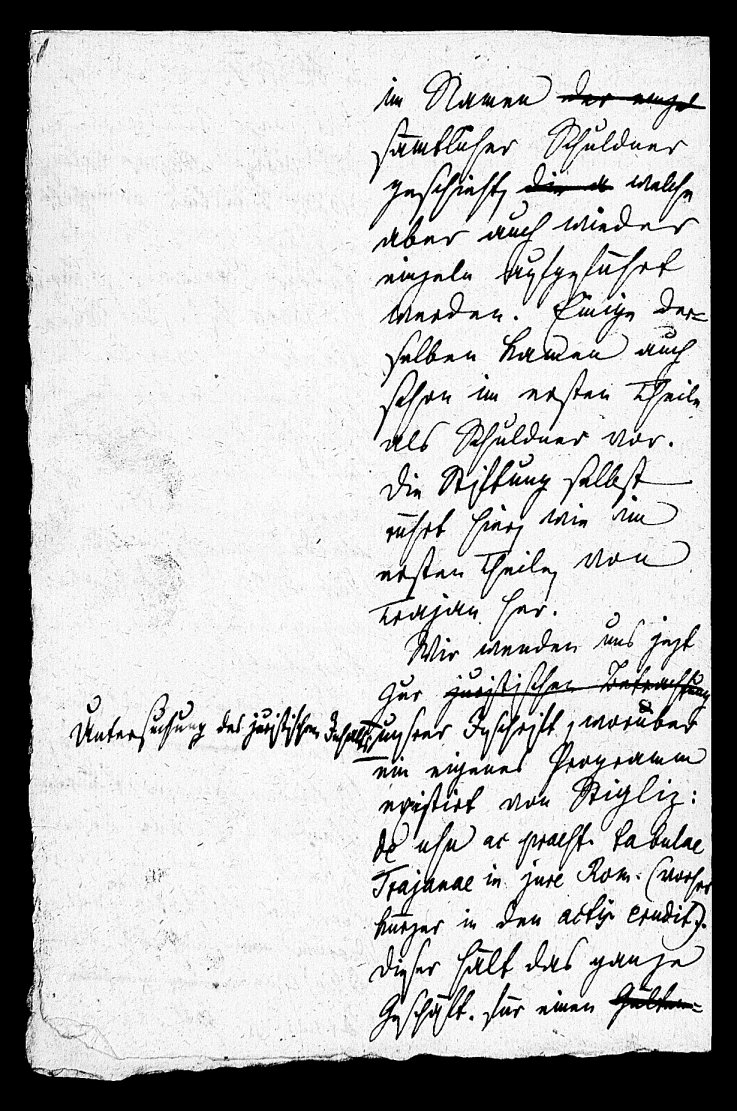 im Namen der einze
sämtlicher Schuldner
geschieht, die a welche
aber auch wieder
einzeln aufgeführt
werden. Einige der=
selben kamen auch
schon im ersten Theile
als Schuldner vor.
Die Stiftung selbst
rührt hier, wie im
ersten Theile, von
Trajan her.
Wir wenden uns jezt
zur juristischen Betrachtung
Untersuchung des juristischen Inhalts
unsrer Inschrift, worüber
ein eigenes Programm
existirt von Stigliz:
de usu ac praest. tabulae
Trajanae in jure Rom. (vorher
kürzer in den actis erudit).
Dieser hält das ganze
Geschäft für einen Gülten=